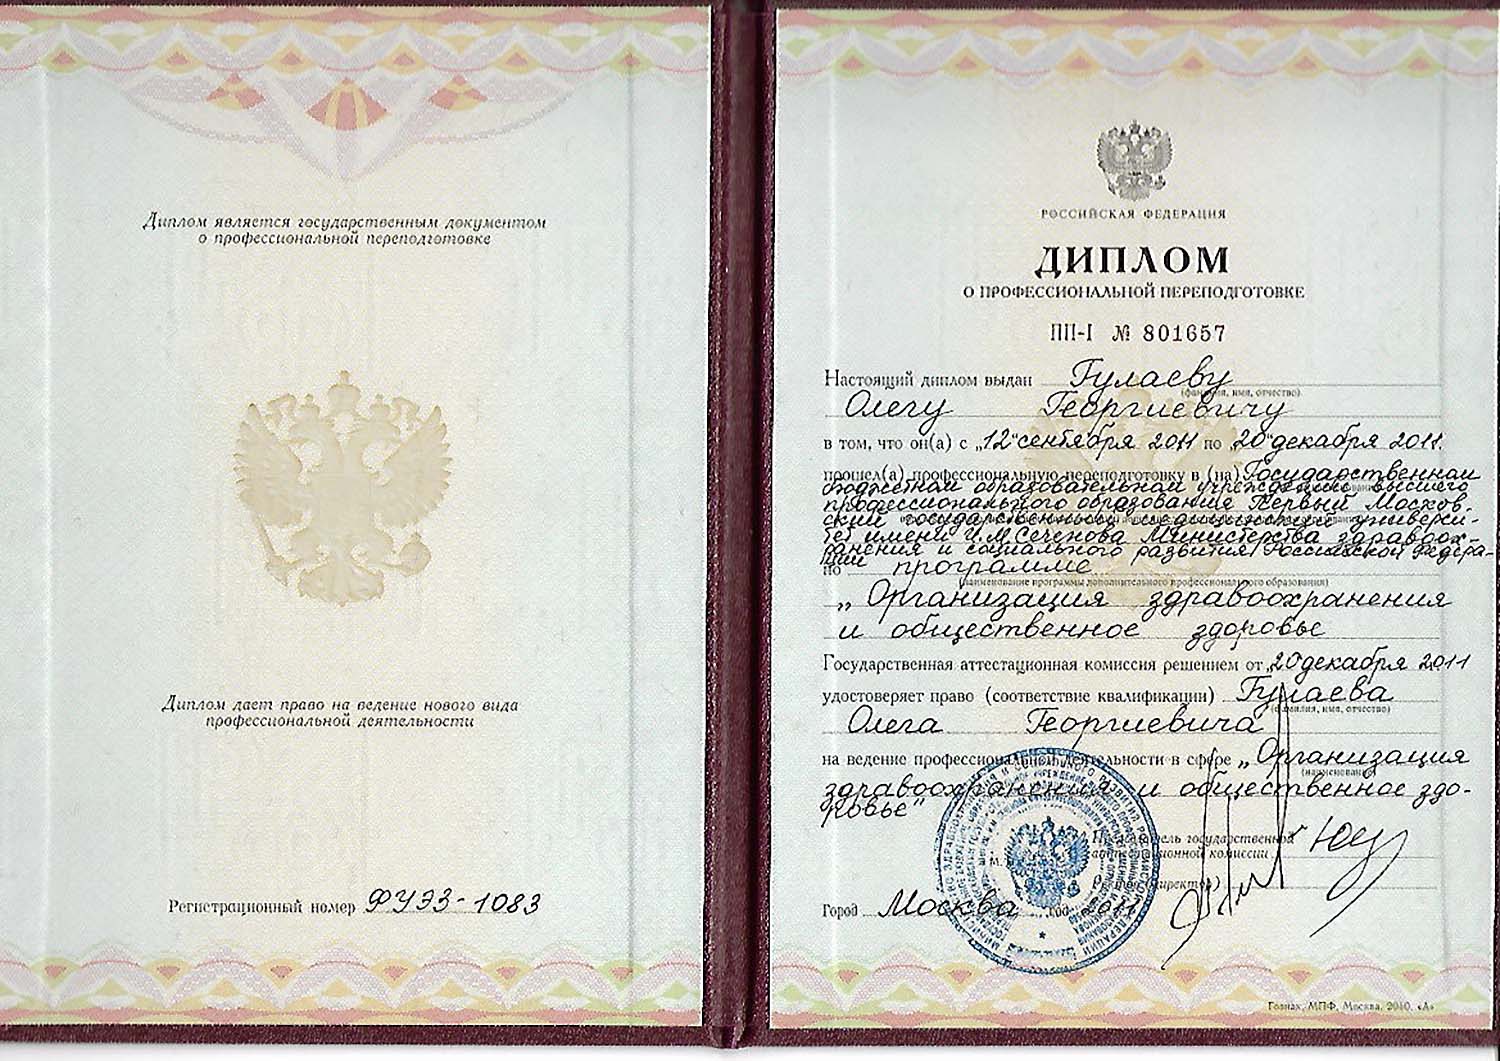 Диплом является государственным документом
о профессиональной переподготовке
Диплом дает право на ведение нового вида
профессиональной деятельности
Регистрационный номер ФУЭЗ-1083
РОССИЙСКАЯ ФЕДЕРАЦИЯ
ДИПЛОМ
О ПРОФЕССИОНАЛЬНОЙ ПЕРЕПОДГОТОВКЕ
ПП-I № 801657
Настоящий диплом выдан Гулаеву
(фамилия, имя, отчество)
Олегу Георгиевичу
в том, что он(а) с „12" сентября 2011 по „20" декабря 2011.
прошел(а) профессиональную переподготовку в (на) Государственном
бюджетном образовательном учреждении высшего
профессионального образования Первый Москов-
ский государственный медицинский универси-
тет имени И.М. Сеченова Министерства здравоох-
ранения и социального развития Российской Федера-
ции
по программе
(наименование программы дополнительного профессионального образования)
„Организация здравоохранения
и общественное здоровье
Государственная аттестационная комиссия решением от „20" декабря 2011
удостоверяет право (соответствие квалификации) Гулаева
(фамилия, имя, отчество)
Олега Георгиевича
на ведение профессиональной деятельности в сфере „Организация
(наименование)
здравоохранения и общественное здо-
ровье"
Председатель государственной
аттестационной комиссии
Ректор (директор)
Город Москва год 2011
Гознак, МПФ, Москва, 2010, «А»